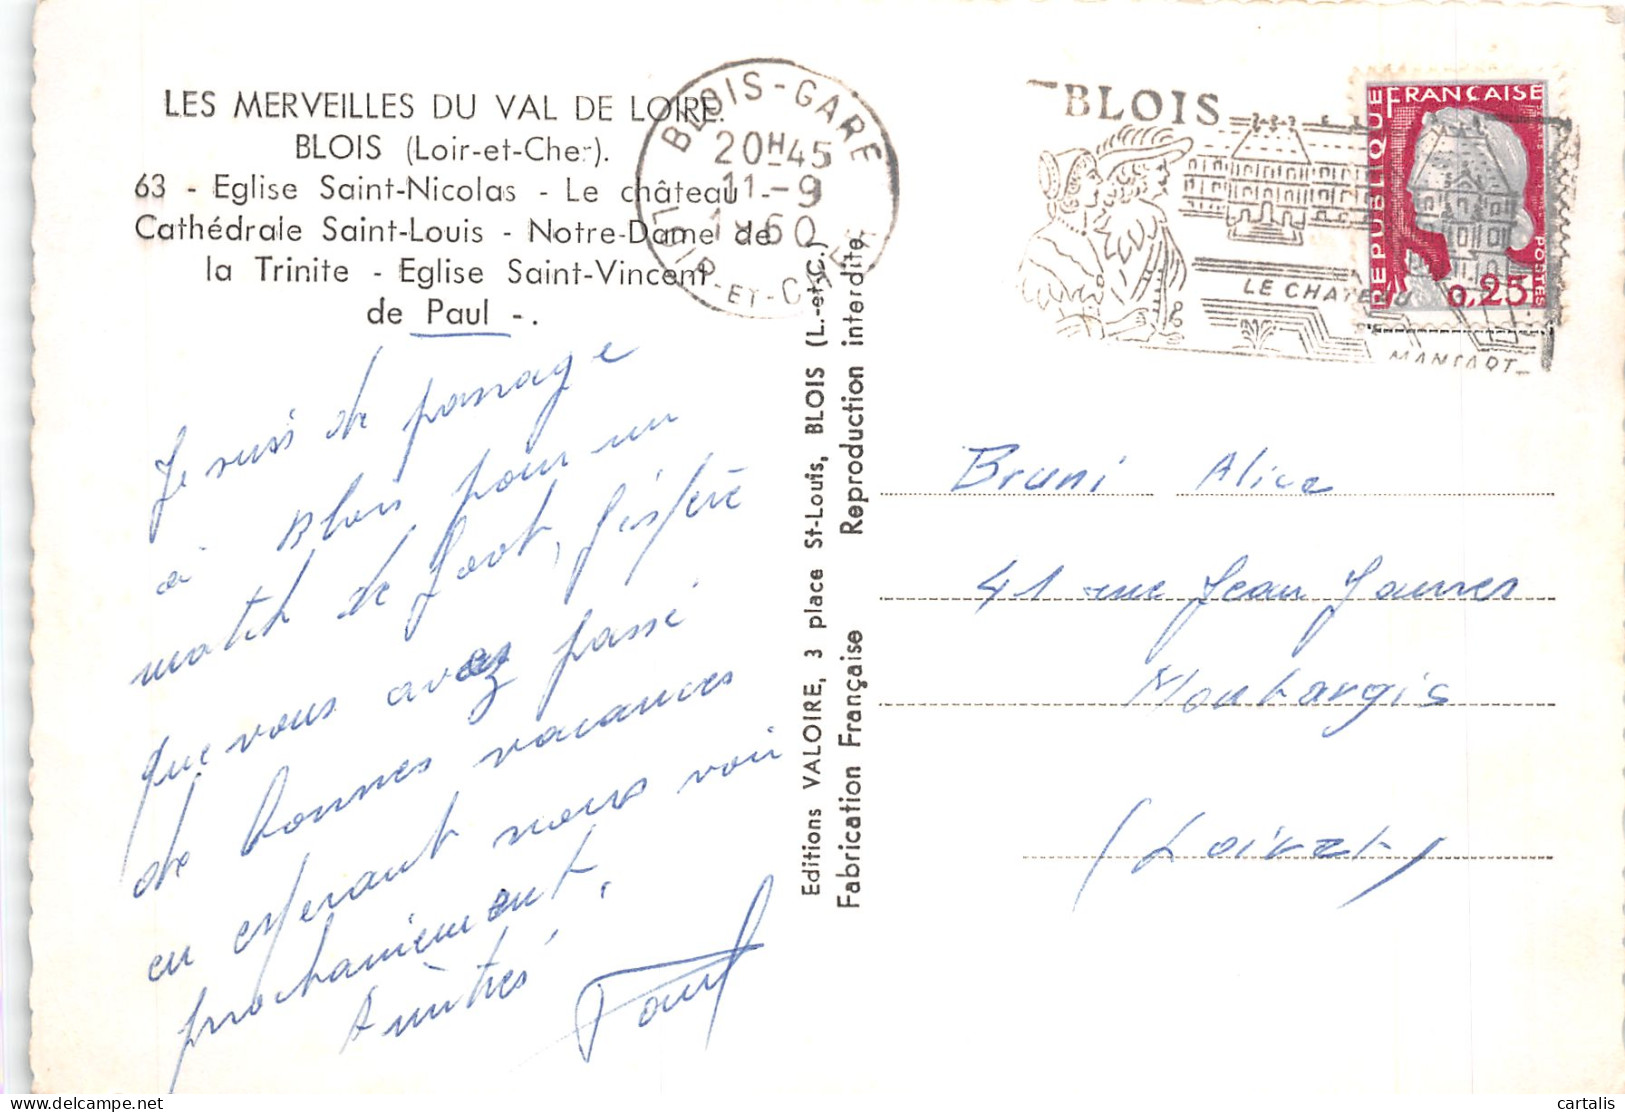 LES MERVEILLES DU VAL DE LOIRE.
BLOIS (Loir-et-Cher).
63 - Eglise Saint-Nicolas - Le château -
Cathédrale Saint-Louis - Notre-Dame de
la Trinite - Eglise Saint-Vincent
de Paul -.
Je suis de passage
à Blois pour un
match de foot, j'espère
que vous avez passé
de bonnes vacances
en esperant vous voir
prochainement.
Amitiés
Paul
BLOIS-GARE
20H45
11-9
1960
LOIR-ET-CHER
Editions VALOIRE, 3 place St-Louis, BLOIS (L.-et-C.)
Fabrication Française Reproduction interdite.
BLOIS
LE CHATEAU
MANSART
REPUBLIQUE FRANÇAISE
POSTES
0,25
Bruni Alice
41 rue Jean Jaures
Montargis
(Loiret)
cartalis